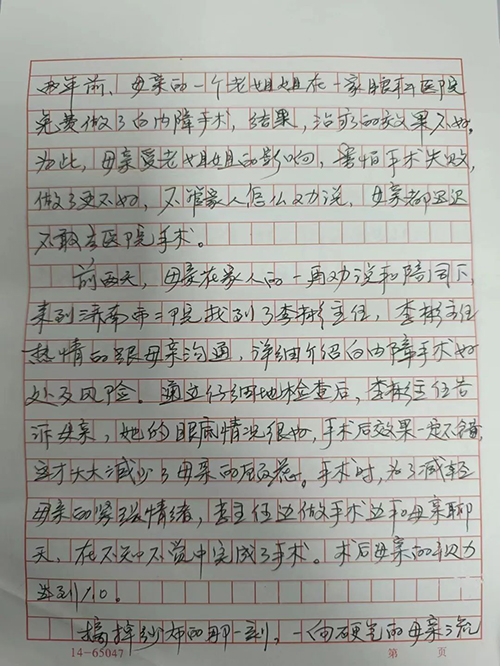 两年前，母亲的一个老姐姐在一家眼科医院
免费做了白内障手术，结果，治疗的效果不好。
为此，母亲受老姐姐的影响，害怕手术失败，
做了更不好，不管家人怎么劝说，母亲都迟迟
不敢去医院手术。
前两天，母亲在家人的一再劝说和陪同下，
来到济南市二院找到了李彬主任，李彬主任
热情的跟母亲沟通，详细介绍白内障手术的好
处及风险。通过仔细地检查后，李彬主任告
诉母亲，她的眼底情况很好，手术后效果一定不错，
这才大大减少了母亲的顾虑。手术时，为了减轻
母亲的紧张情绪，李主任边做手术边和母亲聊
天，在不知不觉中完成了手术。术后母亲的视力
达到1.0。
摘掉纱布的那一刻，一向硬气的母亲流
14-65047
第 页